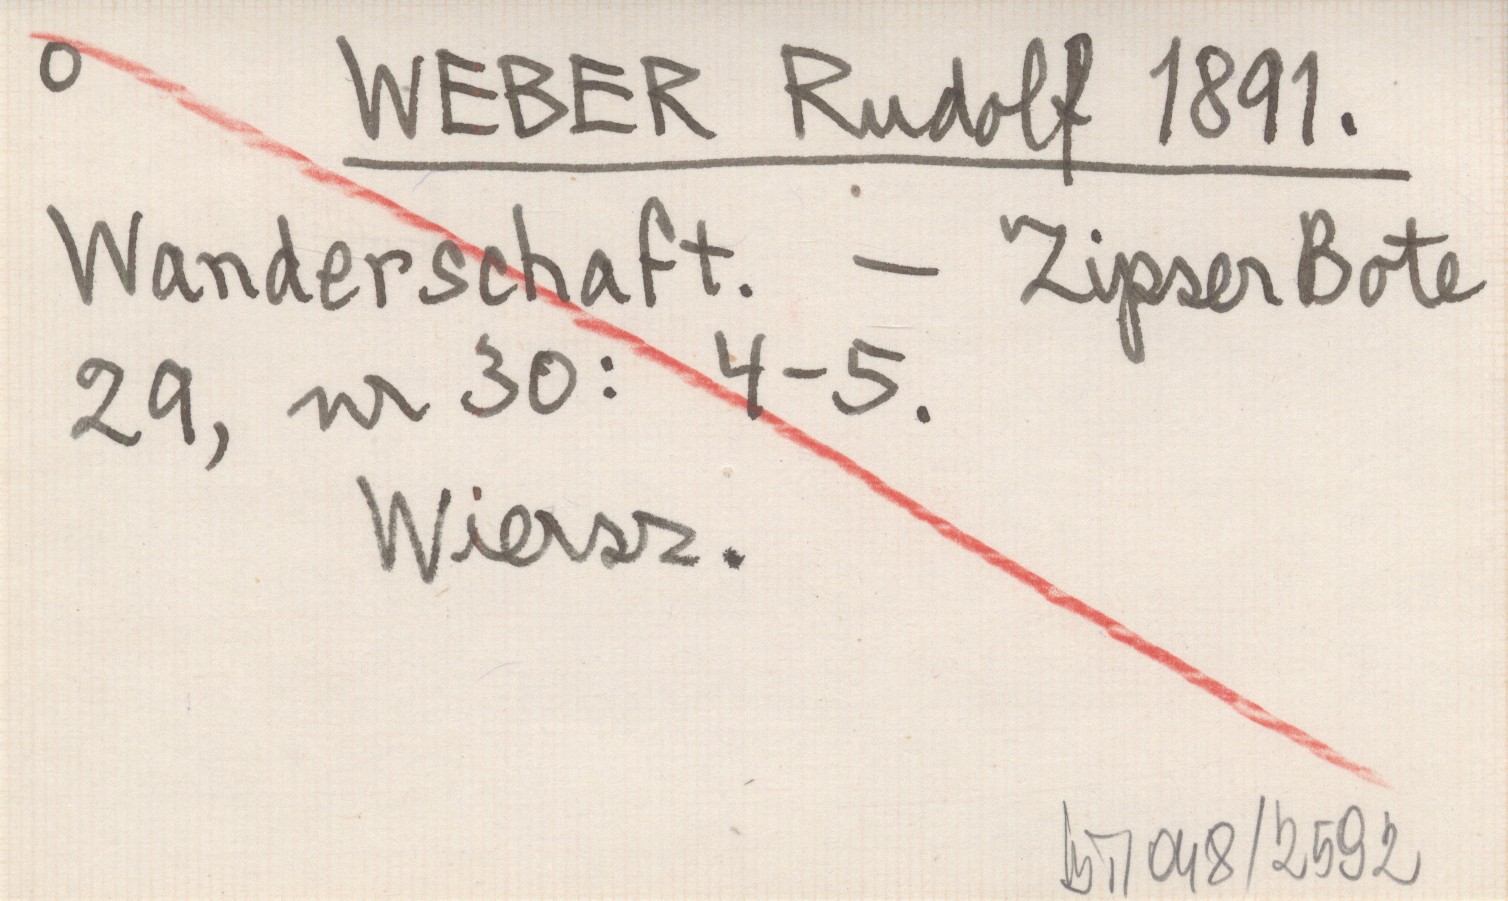 o WEBER Rudolf 1891.
Wanderschaft. — Zipser Bote
29, nr 30: 4-5.
Wiersz.
048/2592